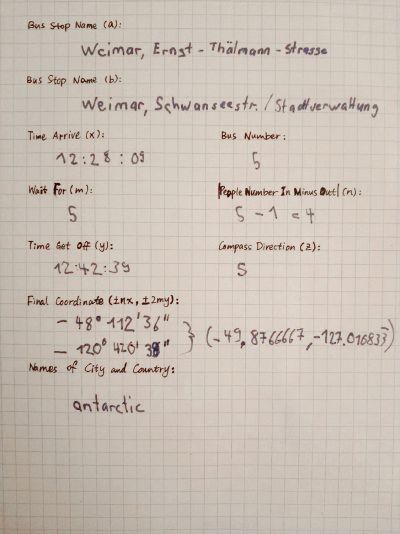 Bus Stop Name (a):
Weimar, Ernst - Thälmann - Strasse
Bus Stop Name (b):
Weimar, Schwanseestr. / Stadtverwaltung
Time Arrive (x): Bus Number:
12:28:09 5
Wait For (m): |People Number In Minus Out| (n):
5 5 - 1 = 4
Time Get Off (y): Compass Direction (z):
12:42:39 S
Final Coordinate (±nx, ±2my):
- 48° 112' 36"
- 120° 420' 39" } (-49,8766667, -127.016833)
Names of City and Country:
antarctic